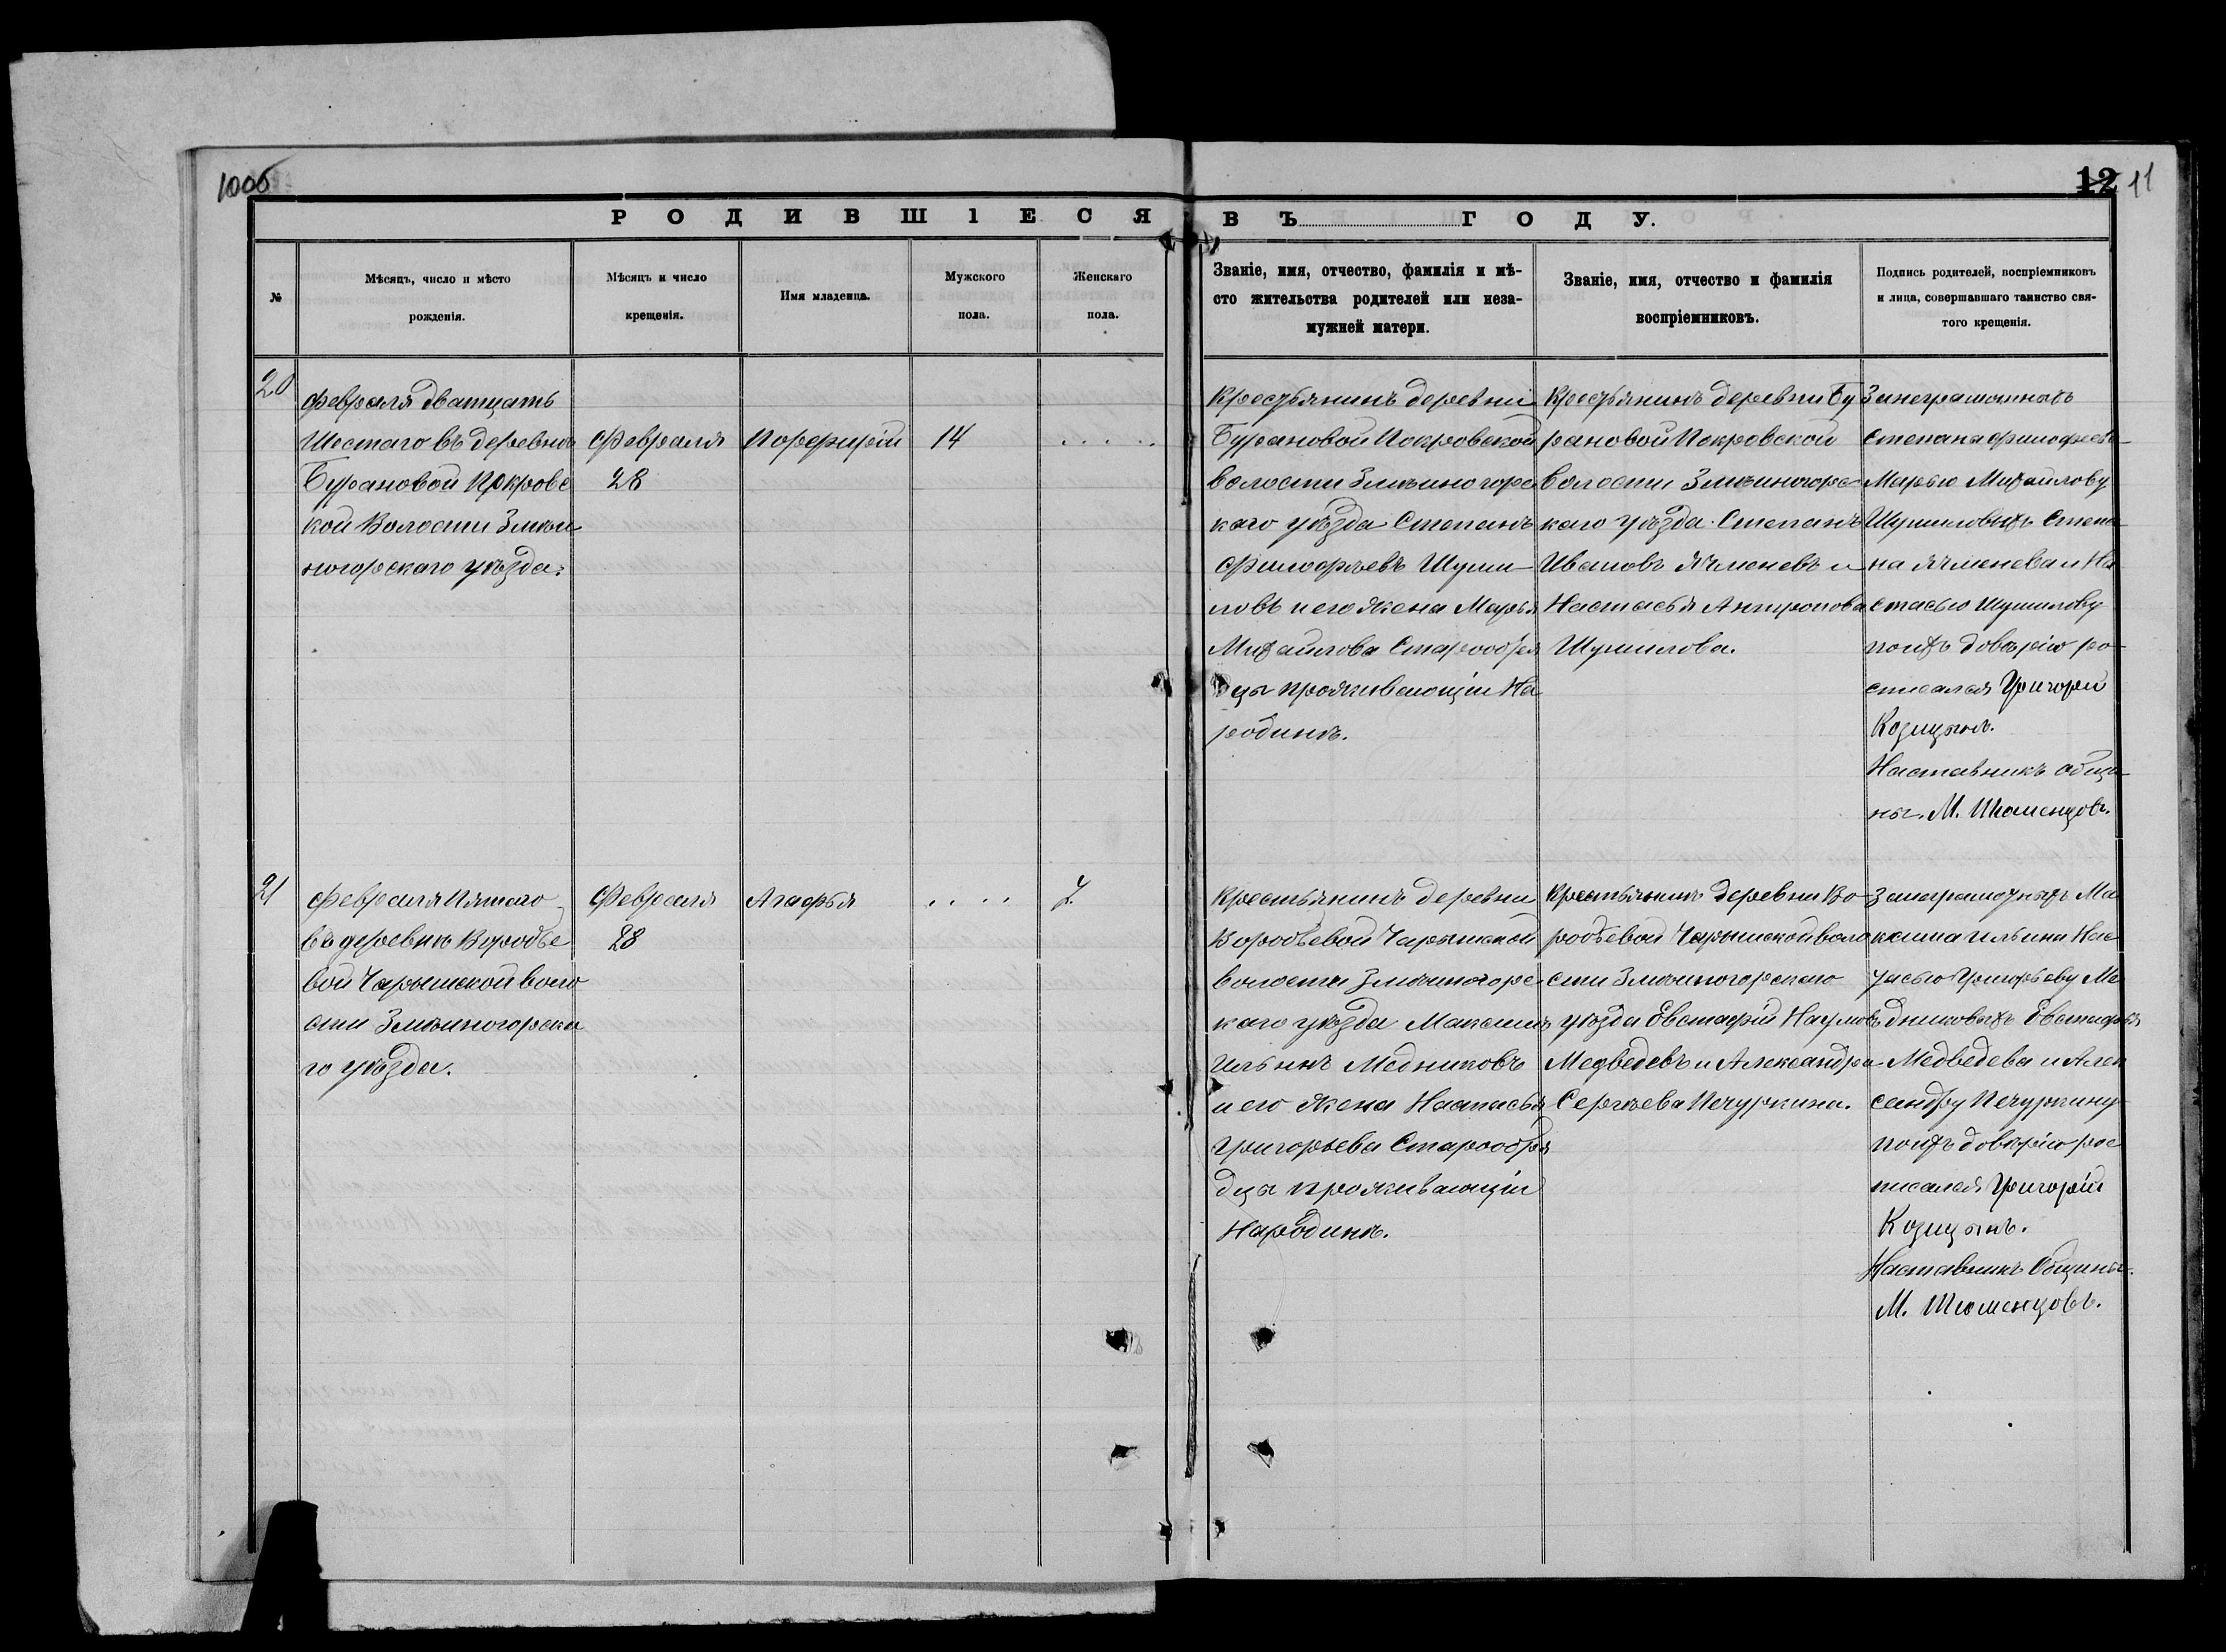 10об
12 11
РОДИВШІЕСЯ ВЪ ГОДУ.
№
Мѣсяцъ, число и мѣсто
рожденія.
Мѣсяцъ и число
крещенія.
Имя младенца.
Мужского
пола.
Женскаго
пола.
Званіе, имя, отчество, фамилія и мѣ-
сто жительства родителей или неза-
мужней матери.
Званіе, имя, отчество и фамилія
воспріемниковъ.
Подпись родителей, воспріемниковъ
и лица, совершавшаго таинство свя-
того крещенія.
20
февраля дватцать
Шестаго въ деревнѣ
Бурановой Покровс
кой Волости Змѣи
ногорскаго уѣзда.
Февраля
28
Порфирій
14
. . . . .
Крестьянинъ деревни
Бурановой Покровской
волости Змѣиногорс
каго уѣзда Степанъ
Филофѣевъ Шуми-
ловъ и его жена Марья
Михайлова Старообря
дцы проживающіи На
родинѣ.
Крестьянинъ деревни Бу
рановой Покровской
волости Змѣиногорс
каго уѣзда Степанъ
Ивановъ Ячменевъ и
Настасья Антропова
Шумилова.
За неграмотныхъ
Степана Филофѣева
Марью Михайлову
Шумиловыхъ Степа
на Ячменева и На
стасью Шумилову
поихъ довѣрію ро-
списался Григорій
Козицынъ.
Наставникъ общи-
ны. М. Шеменцовъ.
21
февраля Пятаго
въ деревнѣ Воробье
вой Чарышской воло
сти Змѣиногорска
го уѣзда.
Февраля
28
Агафья
. . . .
7
Крестьянинъ деревни
Воробьевой Чарышской
волости Змѣиногорс
каго уѣзда Максимъ
Ильинъ Медниковъ
и его жена Настасья
Григорьева Старообря
дцы проживающіи
Народинѣ.
Крестьянинъ деревни Во-
робьевой Чарышской воло
сти Змѣиногорскаго
уѣзда Евстафій Наумовъ
Медведевъ и Александра
Сергѣева Печуркина.
За неграмотныхъ Ма
ксима Ильина Нас
тасью Григорьеву Ме
дниковыхъ Евстафія
Медведева и Алек
сандру Печуркину
поихъ довѣрію рос
писался Григорій
Козицынъ.
Наставникъ Общины.
М. Шеменцовъ.